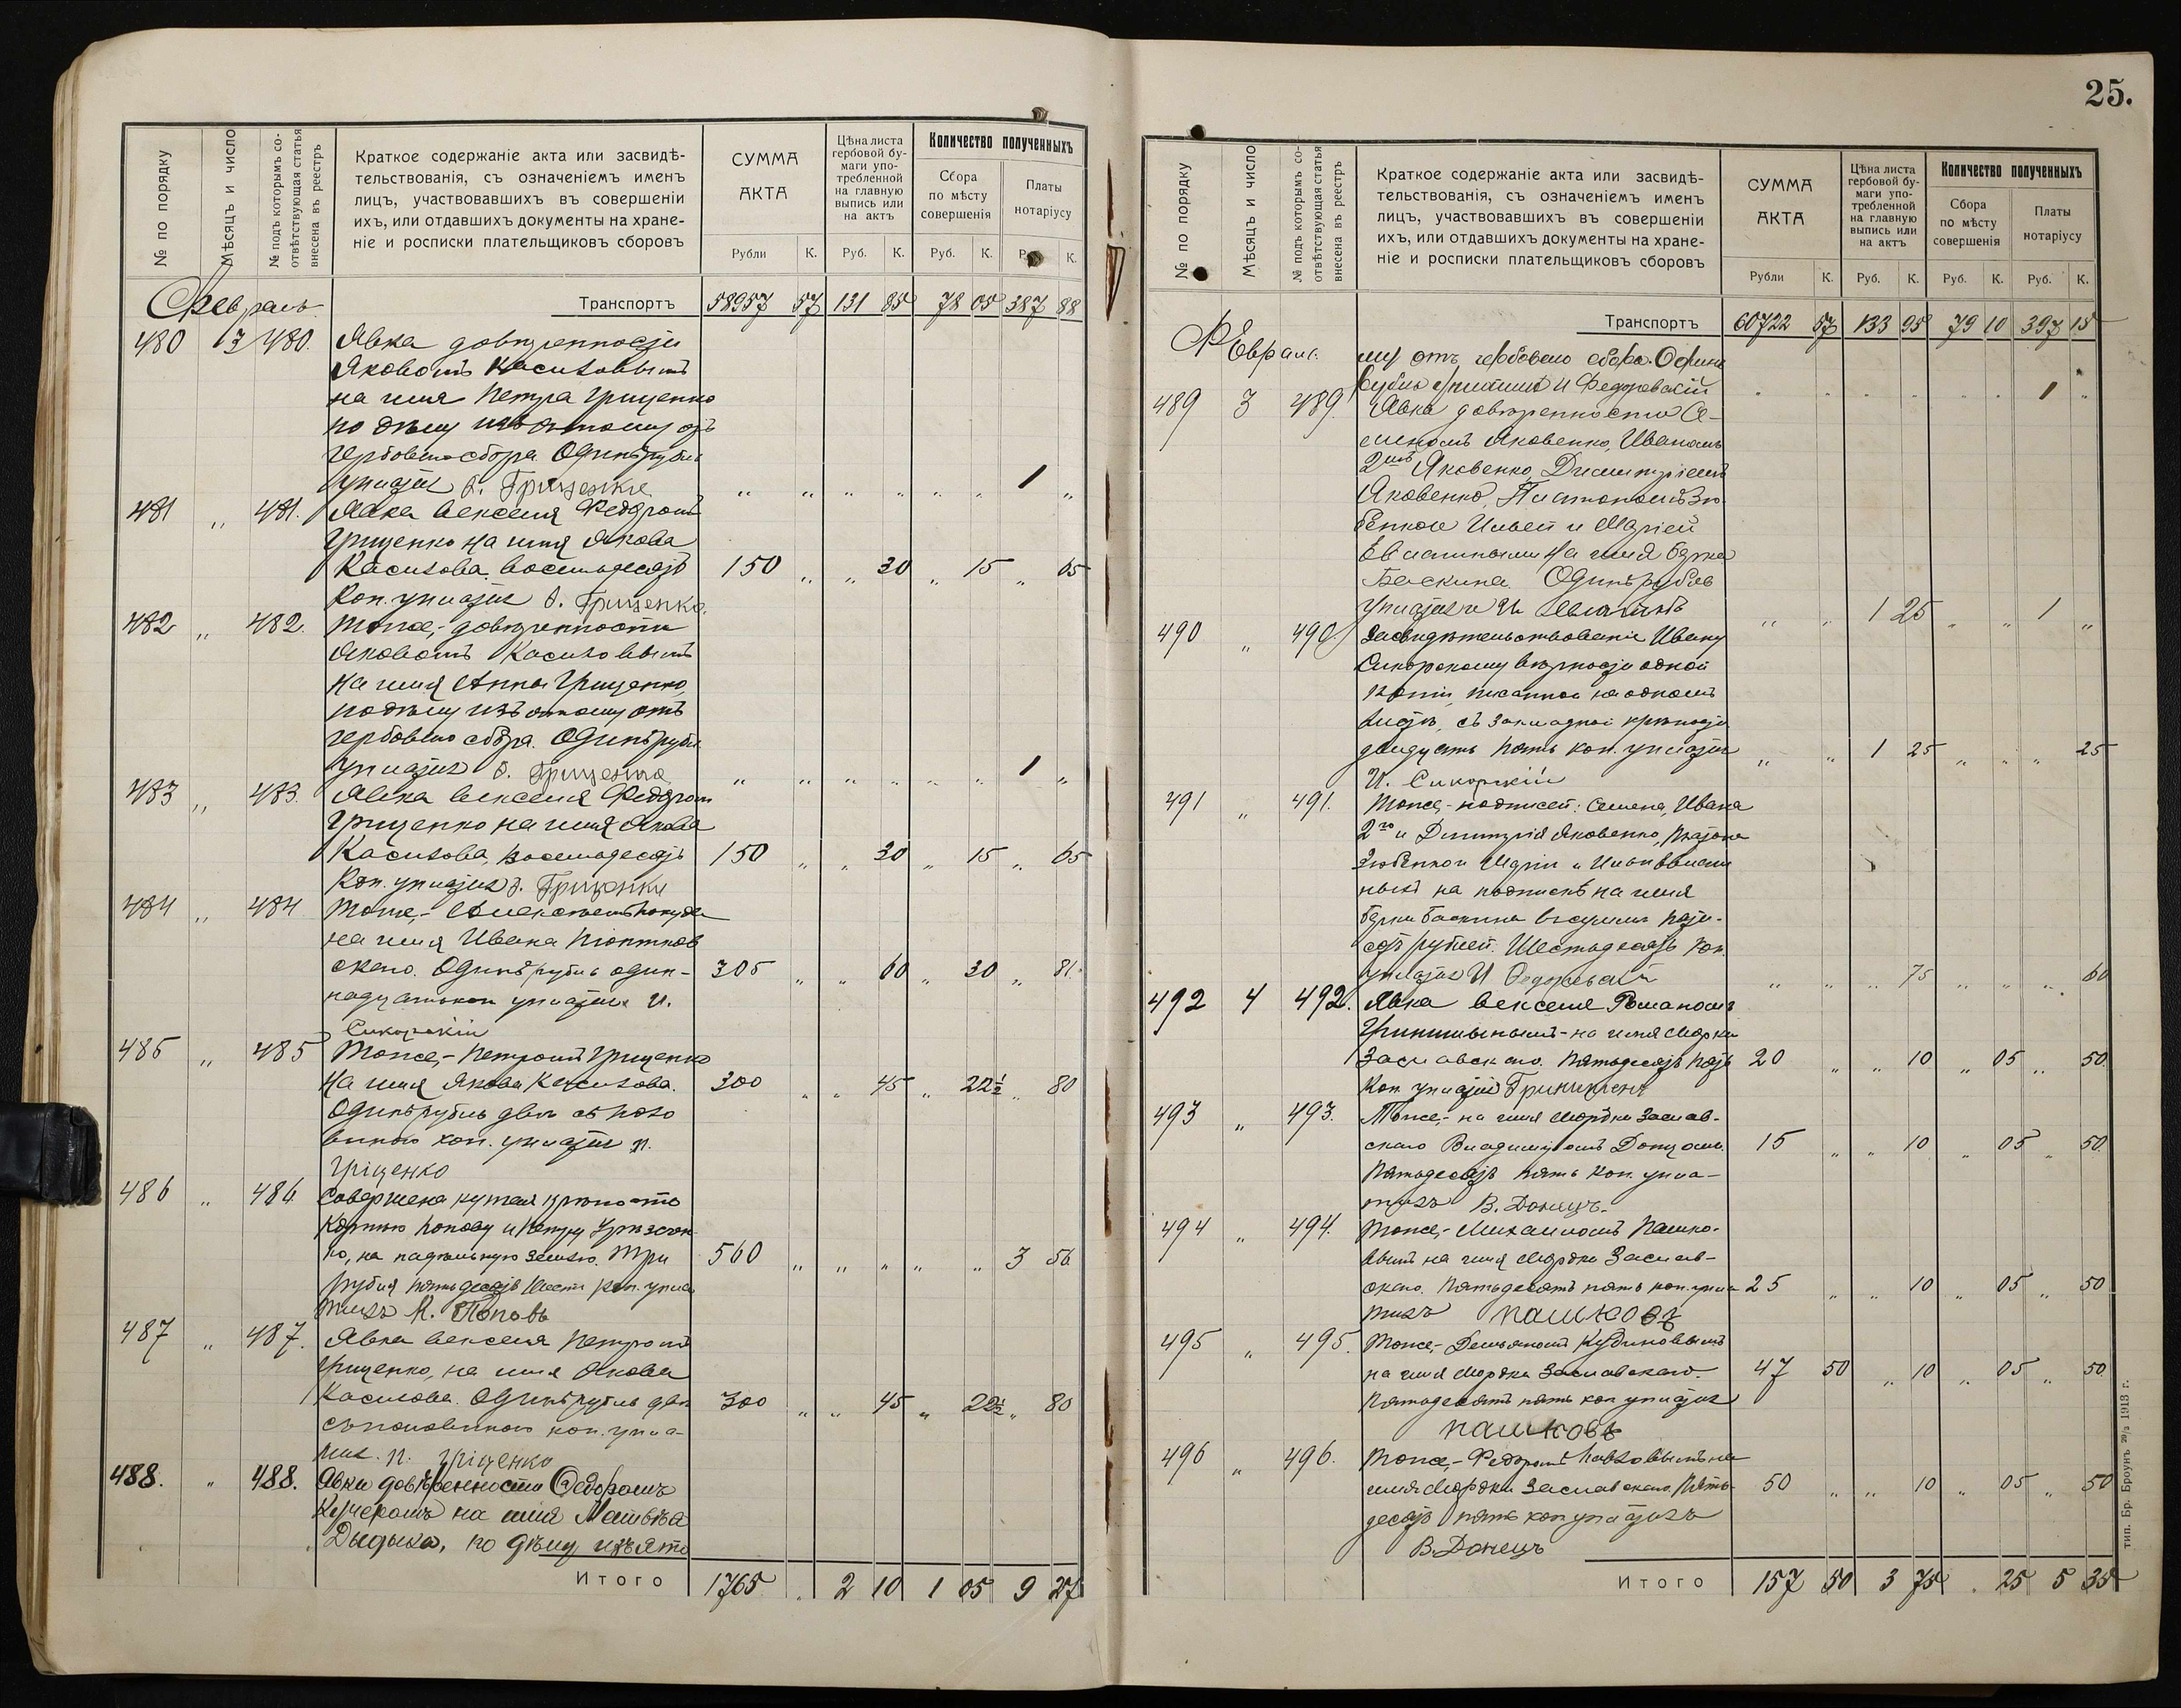 25.
№ по порядку
Мѣсяцъ и число
№ подъ которымъ со-
отвѣтствующая статья
внесена въ реестръ
Краткое содержаніе акта или засвидѣ-
тельствованія, съ означеніемъ именъ
лицъ, участвовавшихъ въ совершеніи
ихъ, или отдавшихъ документы на хране-
ніе и росписки плательщиковъ сборовъ
СУММА
АКТА
Рубли К.
Цѣна листа
гербовой бу-
маги упо-
требленной
на главную
выпись или
на актъ
Руб. К.
Количество полученныхъ
Сбора
по мѣсту
совершенія
Руб. К.
Платы
нотаріусу
К.
Февраль Транспортъ 58957 57 131 85 78 05 387 88
480 3 480. Явка довѣренности
Яковомъ Касиловымъ
на имя Петра Грищенко
по дѣлу изъятому отъ
гербоваго сбора. Одинъ рубль
уплатилъ Грищенко " " " " " " 1 "
481 " 481. Явка векселя Федоромъ
Грищенко на имя Якова
Касилова. Восемьдесятъ 150 " " 30 " 15 " 65
Коп. уплатилъ Грищенко.
482 " 482. Тоже,- довѣренности
Яковомъ Касиловымъ
на имя Анны Грищенко,
по дѣлу изъятому отъ
гербоваго сбора. Одинъ рубль
уплатилъ Грищенко " " " " " " 1 "
483 " 483. Явка векселя Федоромъ
Грищенко на имя Якова
Касилова, восемьдесятъ 150 " " 30 " 15 " 65
Коп. уплатилъ Грищенко
484 " 484 Тоже,-
на имя Ивана
скаго. Одинъ рубль один- 305 " " 60 " 30 " 81
надцать коп уплатилъ И.
Сикорскій
485 " 485 Тоже,- Петромъ Грищенко
на имя Якова Касилова. 300 " " 45 " 22½ " 80
Одинъ рубль двѣ съ поло
виною коп. уплатилъ П.
Грiщенко
486 " 486 Совершена купчая крѣпость
Попову и Петру
ко, на надѣльную землю. Три 560 " " " " " 3 56
рубля пятьдесятъ шесть коп. упла
тилъ К. Поповъ
487 " 487. Явка векселя Петромъ
Грищенко, на имя Якова
Касилова. Одинъ рубль двѣ 300 " " 45 " 22½ " 80
съ половиною коп. упла-
тил. П. Грiщенко
488. " 488. Явки довѣренности Федоромъ
Кучеромъ на имя Матвѣя
Дыдыка, по дѣлу изъято
Итого 1765 . 2 10 1 05 9 27
№ по порядку
Мѣсяцъ и число
№ подъ которымъ со-
отвѣтствующая статья
внесена въ реестръ
Краткое содержаніе акта или засвидѣ-
тельствованія, съ означеніемъ именъ
лицъ, участвовавшихъ въ совершеніи
ихъ, или отдавшихъ документы на хране-
ніе и росписки плательщиковъ сборовъ
СУММА
АКТА
Рубли К.
Цѣна листа
гербовой бу-
маги упо-
требленной
на главную
выпись или
на актъ
Руб. К.
Количество полученныхъ
Сбора
по мѣсту
совершенія
Руб. К.
Платы
нотаріусу
Руб. К.
Февраль Транспортъ 60722 57 133 95 79 10 397 15
му отъ гербоваго сбора. Одинъ
рубль уплатилъ И Федоровскій " " " " " " 1 "
489 3 489. Явка довѣренности Се-
меномъ Яковенко, Иваномъ
2мъ Яковенко, Димитріемъ
Яковенко,
и Маріей
на имя Берка
Баскина. Одинъ рубль
уплатилъ " " 1 25 " " 1 "
490 " 490. Засвидѣтельствованіе Ивану
Сикорскому вѣрности одной
копіи, писанной на одномъ
листѣ, съ закладной крѣпости
двадцать пять коп. уплатилъ " " 1 25 " " " 25
И. Сикорскій
491 " 491. Тоже,- подписей: Семена, Ивана
2го и Димитрія Яковенко,
Маріи и
на подпискѣ на имя
Берки Баскина въ суммѣ пяти-
рублей. Шестьдесятъ коп.
уплатилъ И Федоровскій " " " 75 " " " 60
492 4 492. Явка векселя Романомъ
на имя Мордки
Заславскаго. Пятьдесятъ пять 20 " " 10 " 05 " 50
Коп уплатилъ
493 " 493. Тоже,- на имя Мордки Заслав-
скаго Владиміромъ Донцомъ. 15 " " 10 " 05 " 50.
Пятьдесятъ пять коп. упла-
тилъ В. Донецъ.
494 " 494. Тоже,- Михаиломъ Пашко-
вымъ на имя Мордки Заслав-
скаго. Пятьдесятъ пять коп. упла 25 " " 10 " 05 " 50
тилъ пашковъ
495 " 495. Тоже,- Демьяномъ
на имя Мордка Заславскаго. 47 50 " 10 " 05 " 50
Пятьдесятъ пять коп уплатилъ
пашковъ
496 " 496. Тоже,- Федоромъ на
имя Мордки Заславскаго. Пять- 50 " " 10 " 05 " 50
десятъ пять коп уплатилъ
В. Донецъ
Итого 157 50 3 75 . 25 5 35
тип. Бр. Броунъ 1913 г.